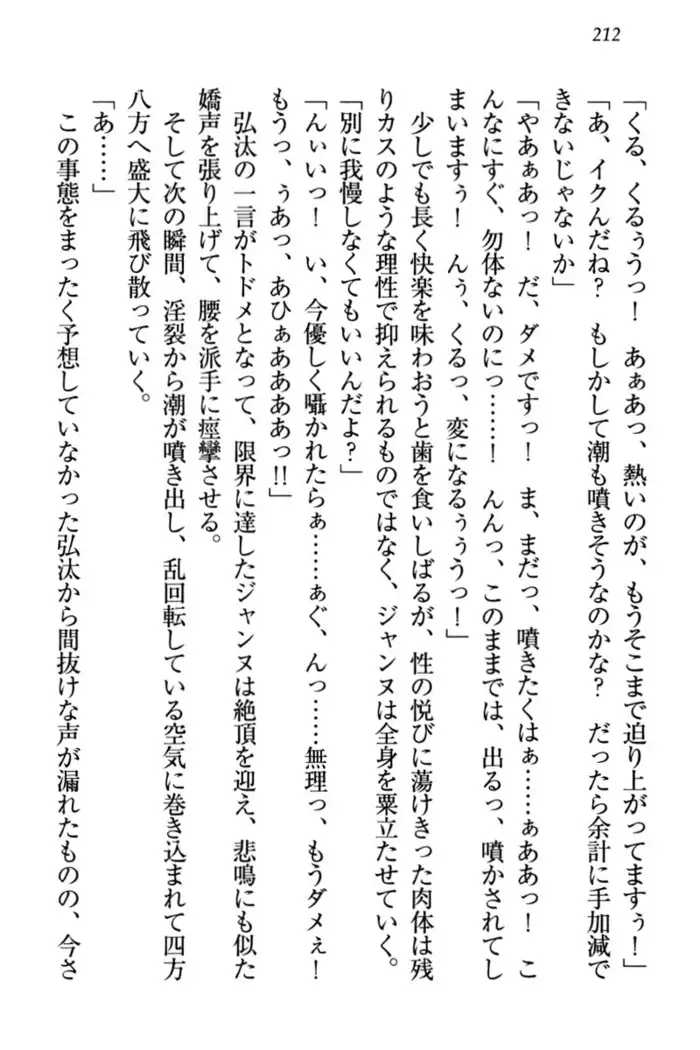 212
「くる、くるぅうっ！　あぁあっ、熱いのが、もうそこまで迫り上がってますぅ！」
「あ、イクんだね？　もしかして潮も噴きそうなのかな？　だったら余計に手加減で
きないじゃないか」
「やあぁあっ！　だ、ダメですっ！　ま、まだっ、噴きたくはぁ……ぁああっ！　こ
んなにすぐ、勿体ないのにっ……！　んんっ、このままでは、出るっ、噴かされてし
まいますぅ！　んぅ、くるっ、変になるぅぅうっ！」
　少しでも長く快楽を味わおうと歯を食いしばるが、性の悦びに蕩けきった肉体は残
りカスのような理性で抑えられるものではなく、ジャンヌは全身を粟立たせていく。
「別に我慢しなくてもいいんだよ？」
「んぃいっ！　い、今優しく囁かれたらぁ……ぁぐ、んっ……無理っ、もうダメぇ！
もうっ、ぅあっ、あひぁああああっ!!」
　弘汰の一言がトドメとなって、限界に達したジャンヌは絶頂を迎え、悲鳴にも似た
嬌声を張り上げて、腰を派手に痙攣させる。
　そして次の瞬間、淫裂から潮が噴き出し、乱回転している空気に巻き込まれて四方
八方へ盛大に飛び散っていく。
「あ……」
　この事態をまったく予想していなかった弘汰から間抜けな声が漏れたものの、今さ